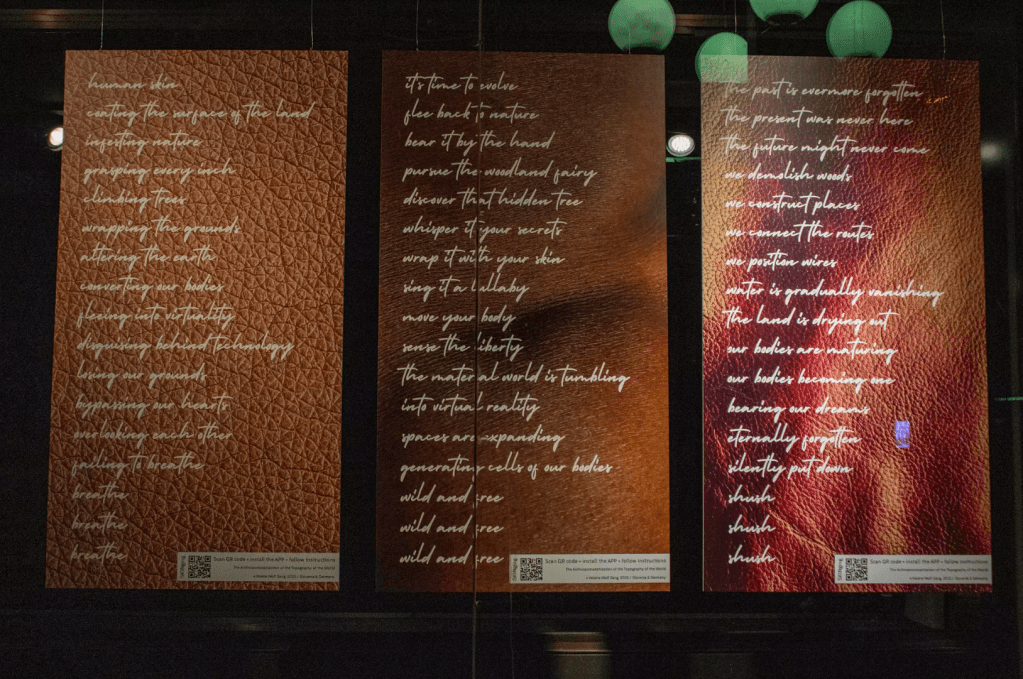 human skin
coating the surface of the land
infesting nature
grasping every inch
climbing trees
wrapping the grounds
altering the earth
converting our bodies
fleeing into virtuality
disguising behind technology
losing our grounds
bypassing our hearts
overlooking each other
failing to breathe
breathe
breathe
breathe
Scan QR code + install the APP + follow instructions
The Anthropomorphization of the Topography of the World
it's time to evolve
flee back to nature
bear it by the hand
pursue the woodland fairy
discover that hidden tree
whisper it your secrets
wrap it with your skin
sing it a lullaby
move your body
sense the liberty
the material world is tumbling
into virtual reality
spaces are expanding
generating cells of our bodies
wild and free
wild and free
wild and free
Scan QR code + install the APP + follow instructions
The Anthropomorphization of the Topography of the World
the past is evermore forgotten
the present was never here
the future might never come
we demolish woods
we construct places
we connect the routes
we position wires
water is gradually vanishing
the land is drying out
our bodies are maturing
our bodies becoming one
bearing our dreams
eternally forgotten
silently put down
shush
shush
shush
Scan QR code + install the APP + follow instructions
The Anthropomorphization of the Topography of the World